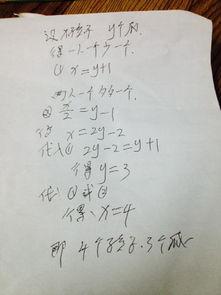 设x个孩子 y个瓜
得一人一个少一个
① x=y+1
两人一个多一个.
② x/2=y-1
得 x=2y-2
代入① 2y-2=y+1
得 y=3
代入①或②
得: x=4
即 4个孩子.3个瓜